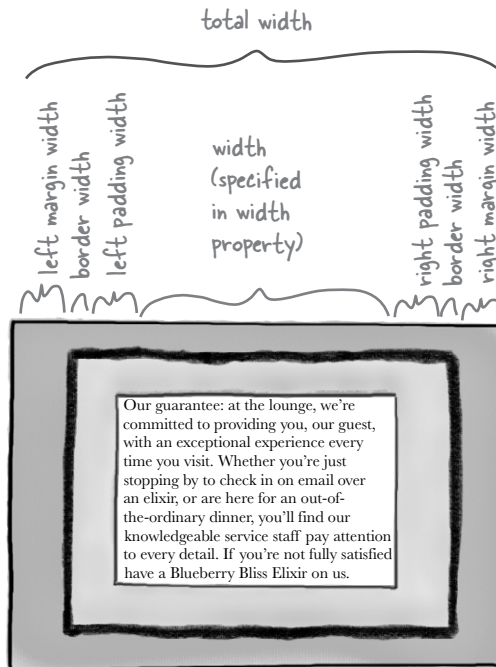 total width
left margin width
border width
left padding width
width
(specified
in width
property)
right padding width
border width
right margin width
Our guarantee: at the lounge, we’re
committed to providing you, our guest,
with an exceptional experience every
time you visit. Whether you’re just
stopping by to check in on email over
an elixir, or are here for an out-of-
the-ordinary dinner, you’ll find our
knowledgeable service staff pay attention
to every detail. If you’re not fully satisfied
have a Blueberry Bliss Elixir on us.